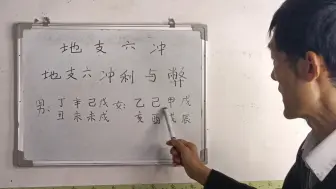 地支六冲
地支六冲利与弊
男:丁辛己戊 女:乙己甲戊
丑未未戌 亥酉戌辰